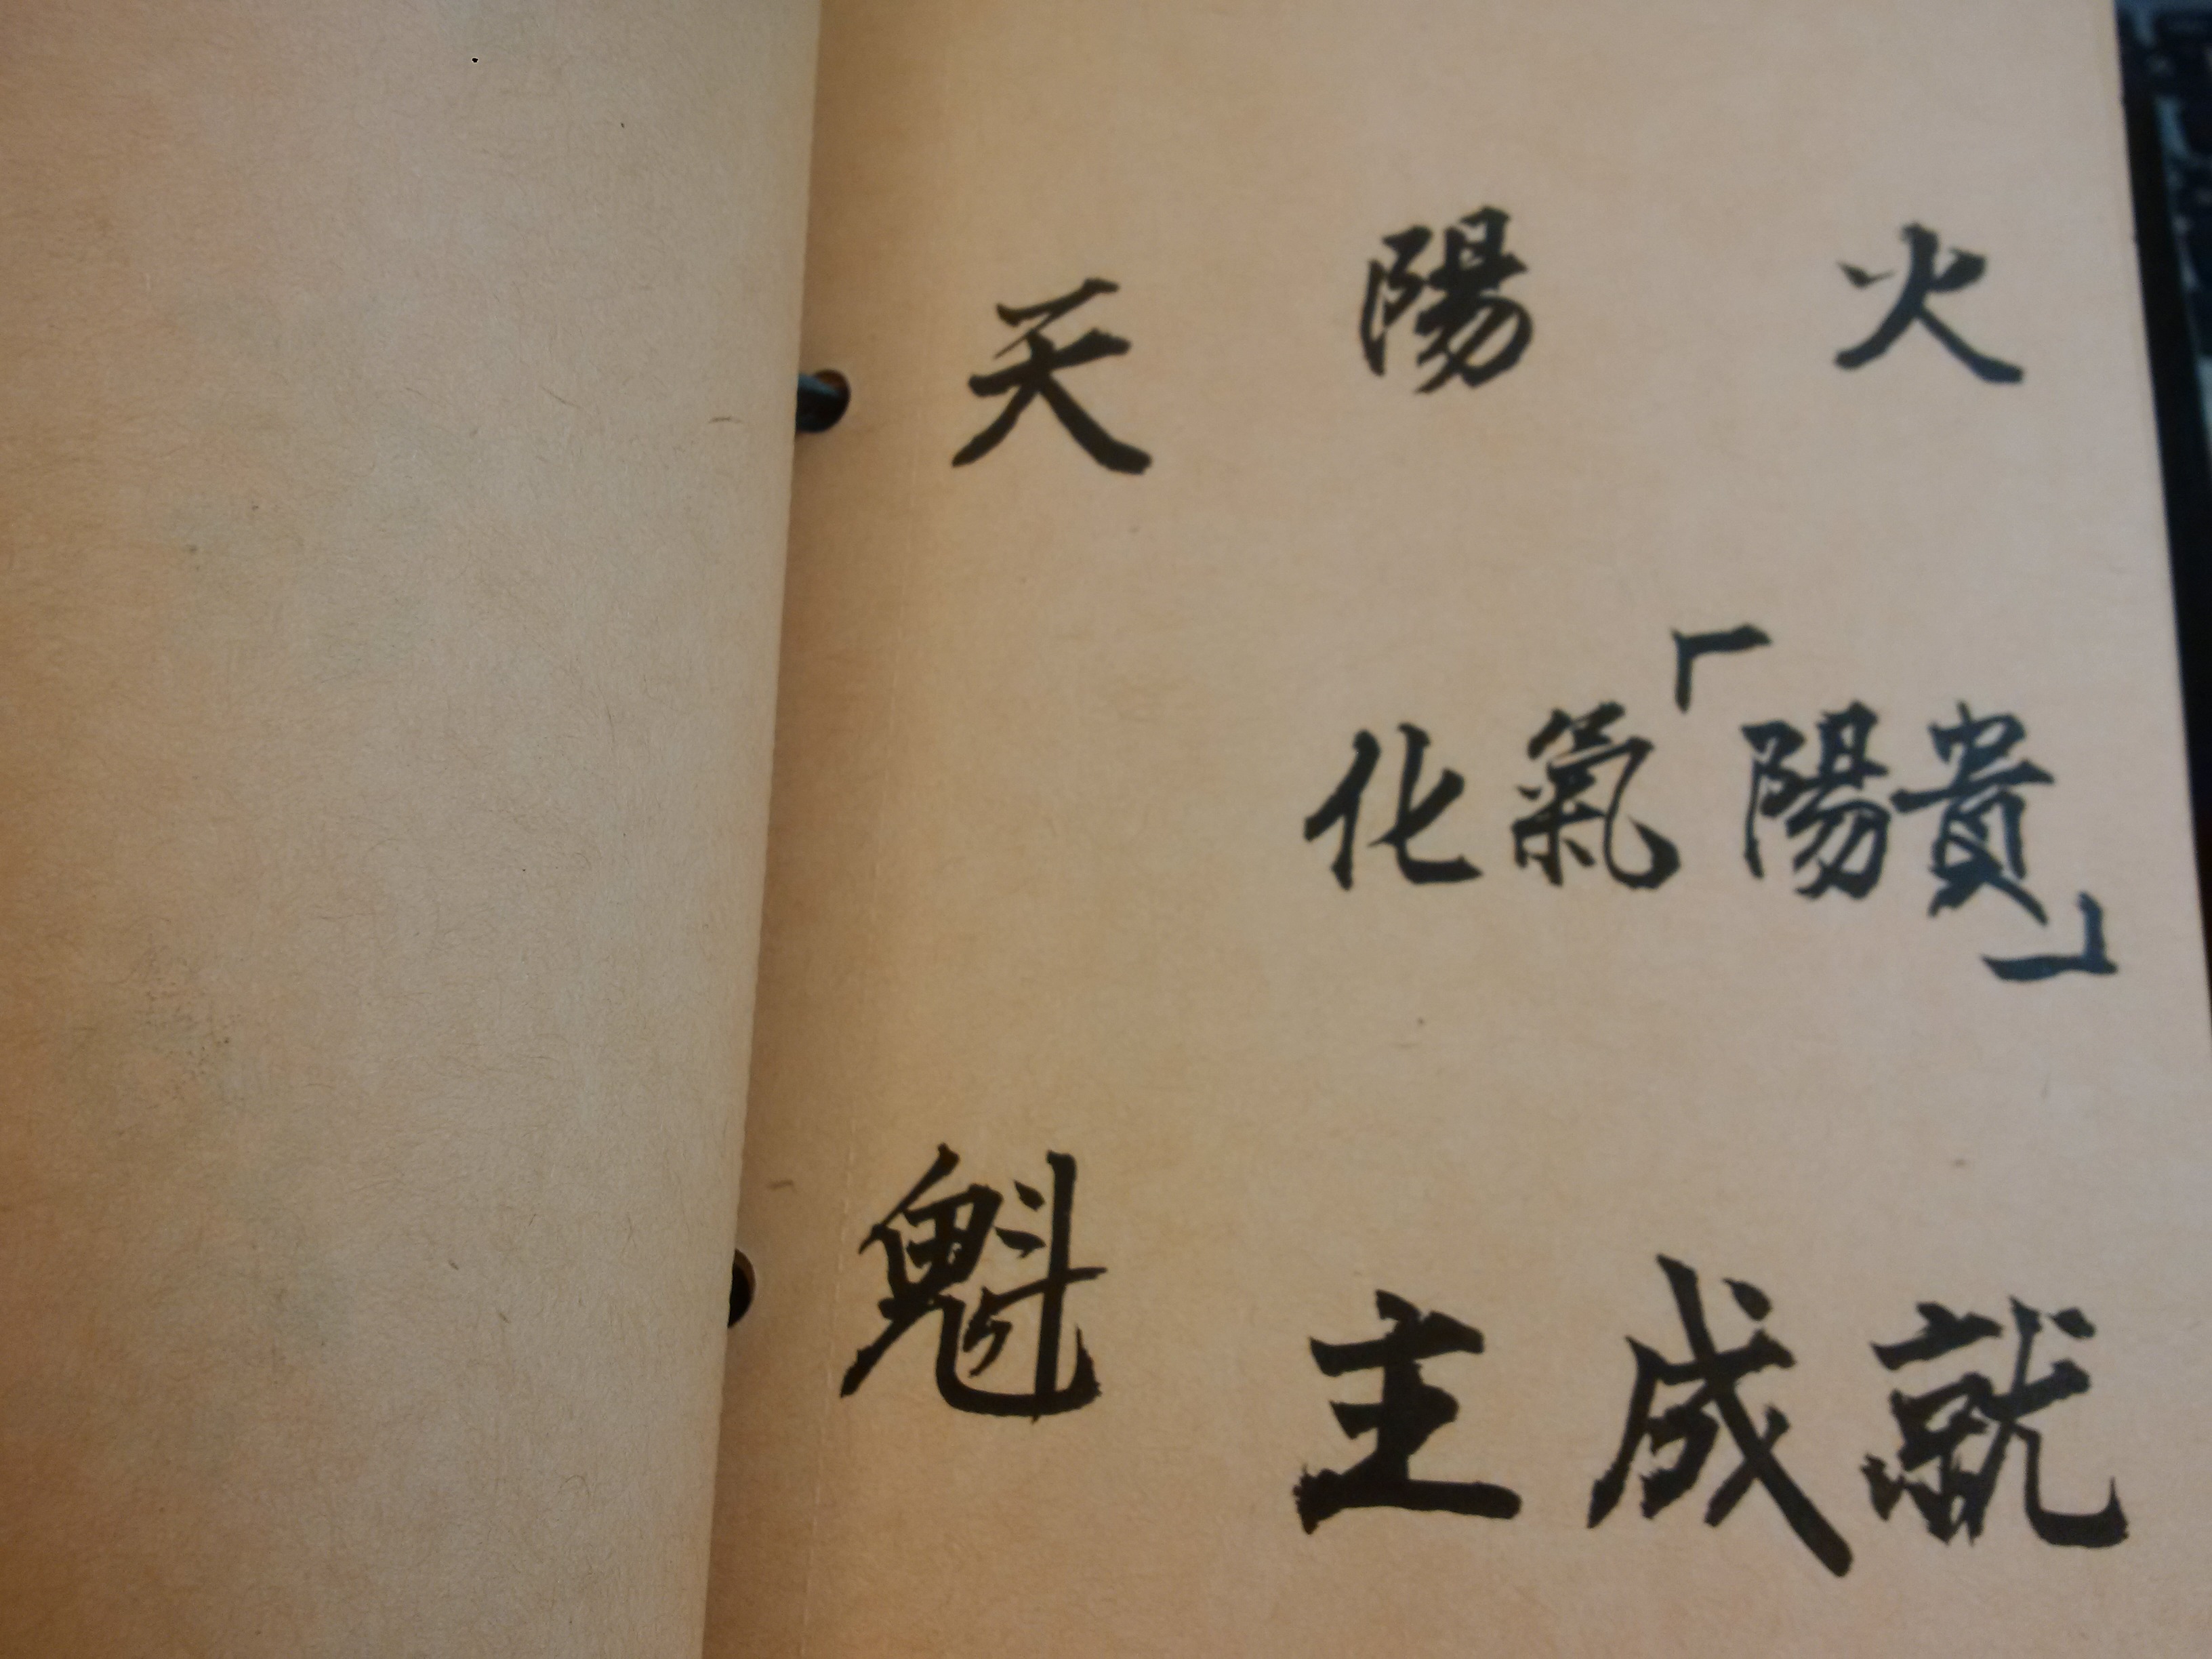 天魁
陽火
化氣「陽貴」
主成就